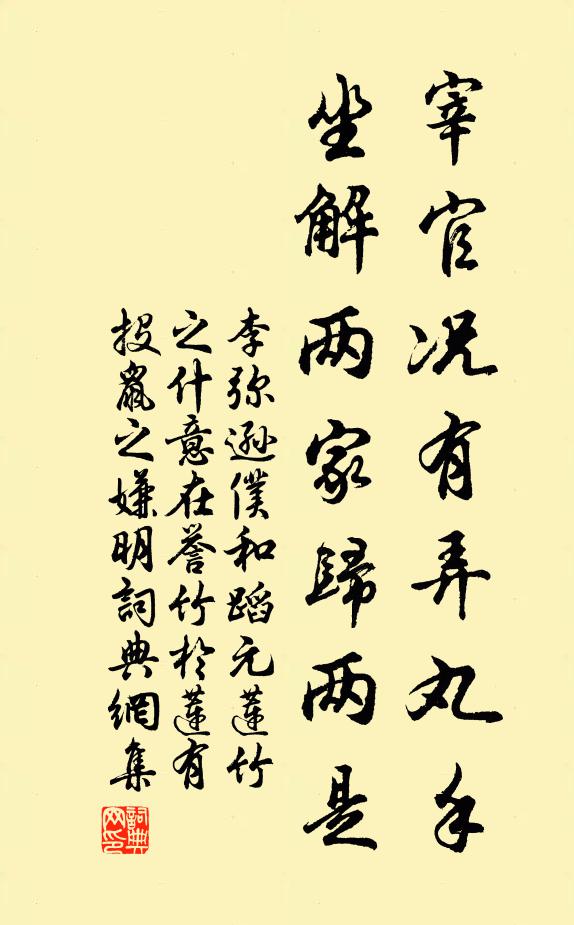 宰官况有弄丸手
坐解两家歸两是
李弥遜僕和蹈元蓮竹
之什意在誉竹於蓮有
投鼠之嫌明詞典網集
詞典網印